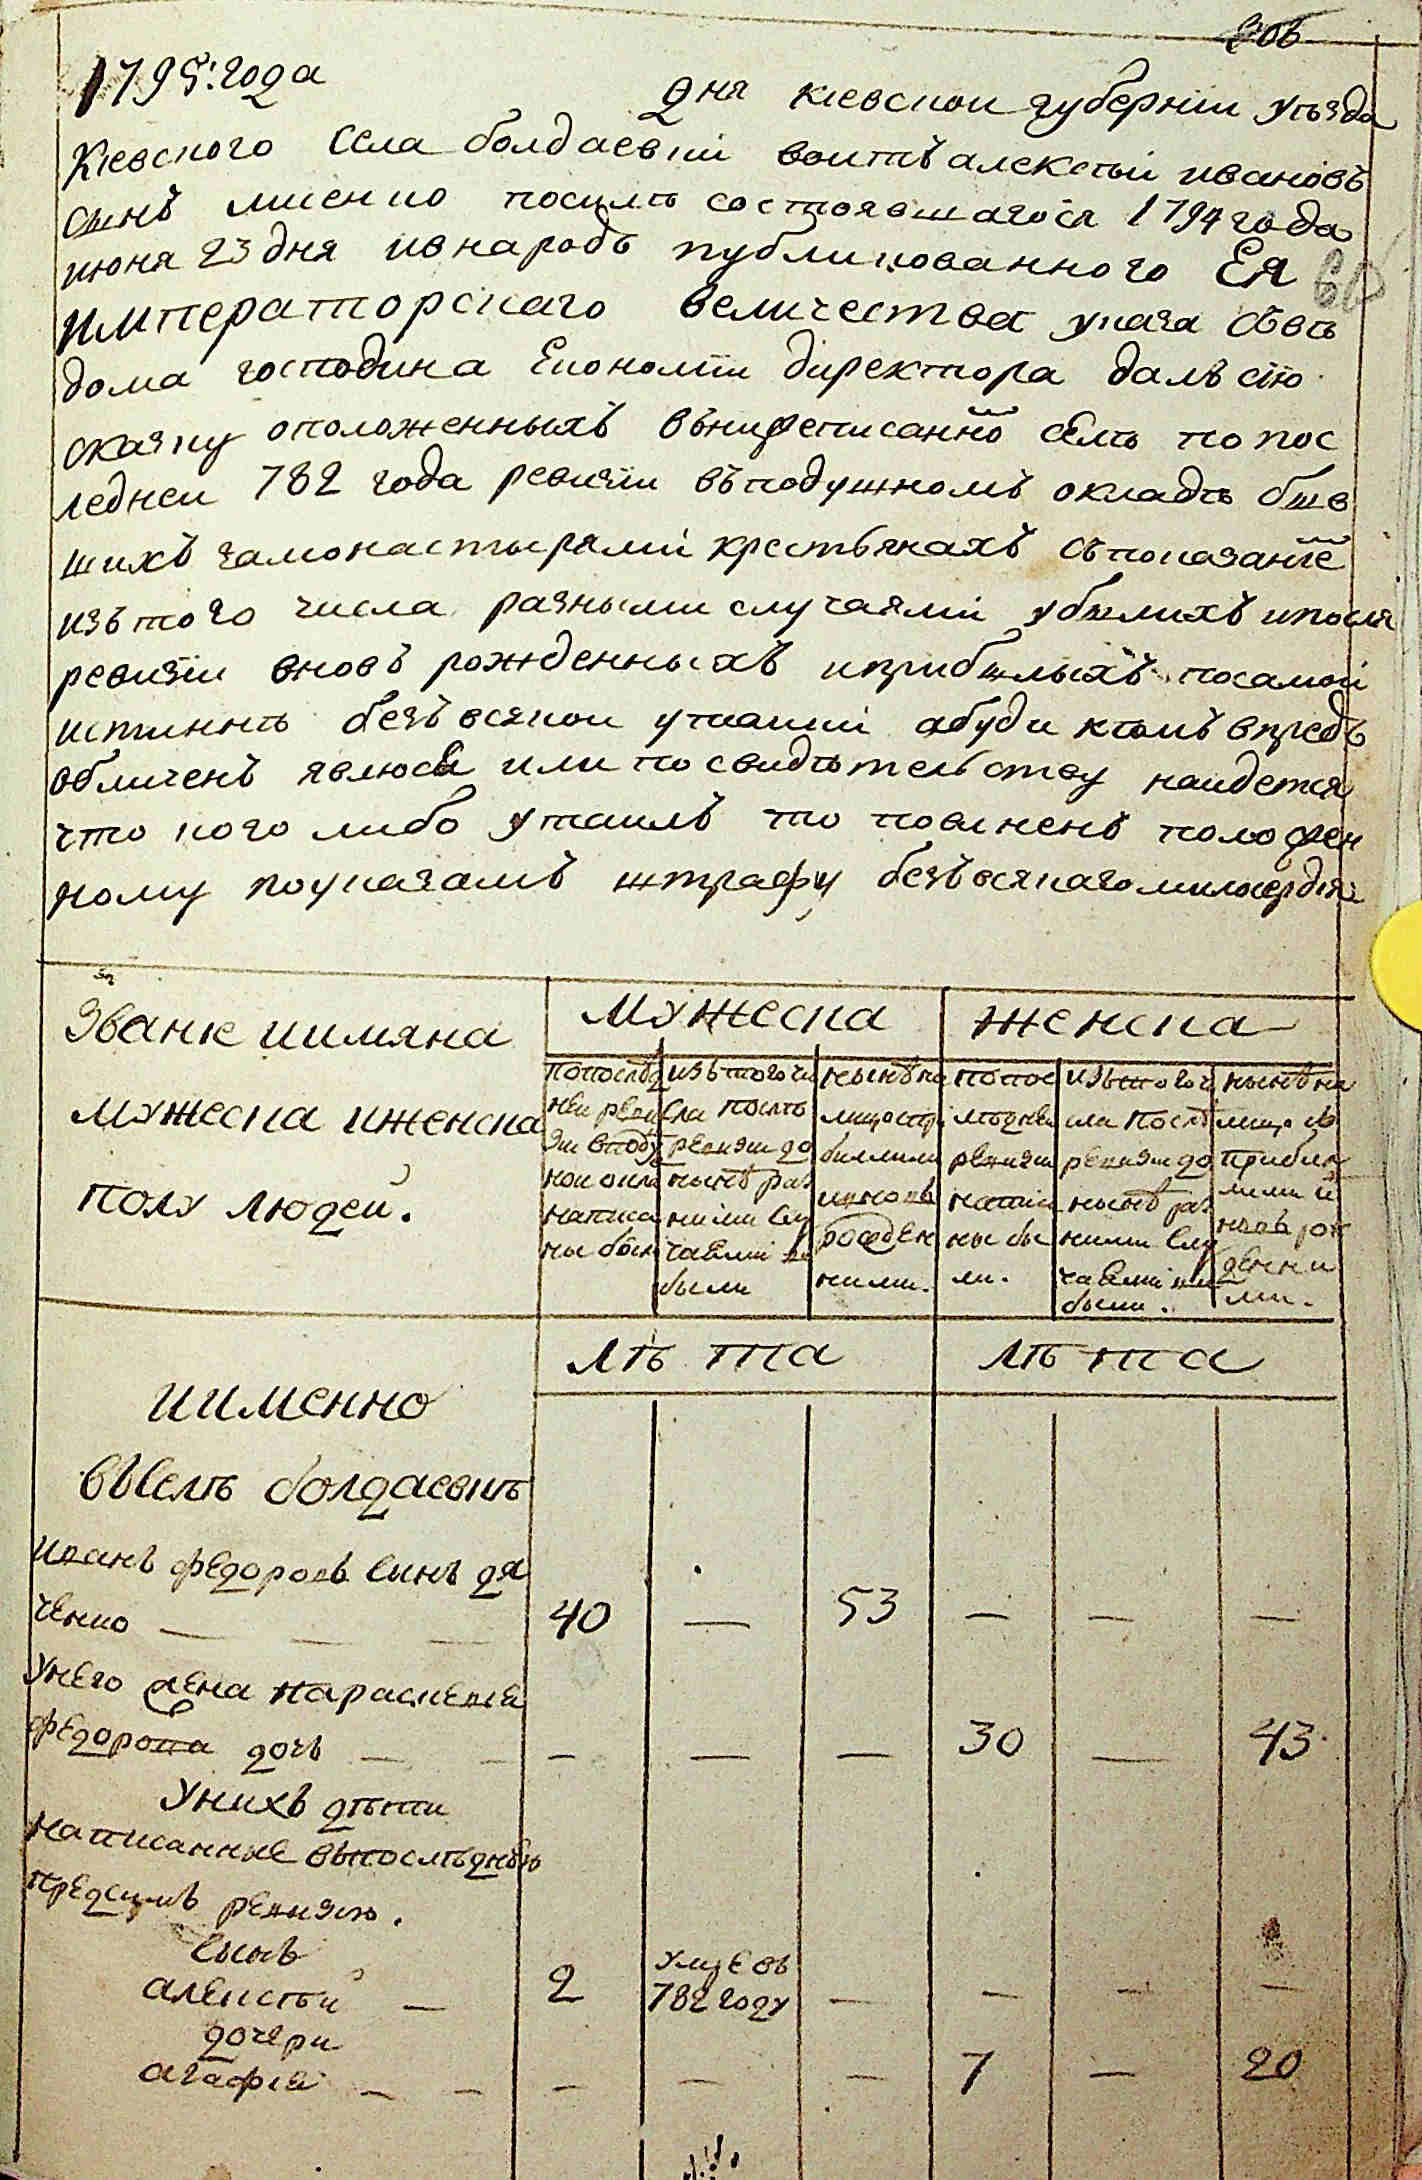 1795: года
дня киевской губернии уѣзда
Киевского села болдаевки войтъ алексѣй ивановъ
сынъ лисенко посилѣ состоявшагося 1794 года
июня 23 дня ивнародъ публикованного Ея
императорскаго величества указа свѣ
дома господина Економіи директора далъ сію
скаску ополоߙженныхъ внижеписанно селѣ попос
ледней 782 года ревизіи въподушномъ окладѣ быв
шихъ замонастырями крестьянахъ съпоказаніе
изътого числа разными случаями убылихъ ипосля
ревизіи вновъ рожденныхъ иприбылыхъ посамой
истиннѣ безъвсякой утайки абуди кѣмъ впредъ
обличенъ явлюся или посвидѣтельству найдется
что кого либо утаилъ то повиненъ положен
ному поуказамъ штрафу безъвсякаго милосердія
Звание иимяна
мужеска иженска
полу людей.
мужеска
женска
попослѣд
ней реви
зіи вподу
ной окла
написа
ны был
изътогочи
сла послѣ
ревизіи до
нынѣ раз
ними слу
чаями
были
нынѣна
лицоспри
билими
ивновь
рожден
ними.
попос
лѣдней
ревизіи
написа
ны бы
ли.
изътогоч
сла послѣ
ревизіи до
нынѣ раз
ними слу
чаями
были.
нынѣна
лицо с
прибил
лими и
новь рож
денни
ми.
лѣта
лѣта
иименно
въселѣ болдаевкѣ
иванъ федоровъ синъ дя
ченко — — — 40 — 53 — — —
Унего жена параскевія
федорова дочь — — — — — 30 — 43
Унихъ дѣти
написанные впослѣднюю
предсимъ ревизію.
сынъ
алексѣй — 2 умре въ 782 году — — — —
дочери
агафія — — — — — 7 — 20